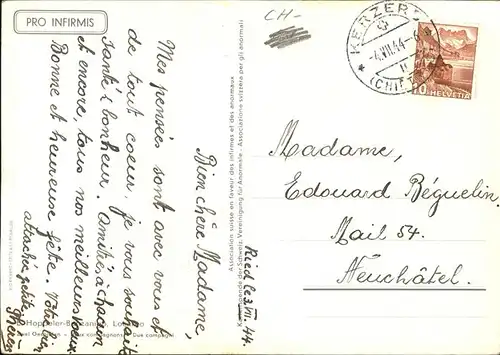 PRO INFIRMIS
CH-
KERZERS
-4.VII.44-6
(CHIÈ
10 HELVETIA
Riedle 3/VII. 44.
Bien chère Madame,
Mes pensées sont avec vous et
de tout coeur, je vous souhaite
santé & bonheur. Amitié à chacun
et encore, tous nos meilleurs voeux.
Bonne et heureuse fête. Votre bien
attachée petite
Madame,
Edouard Béguelin,
Mail 54.
Neuchâtel.
Association suisse en faveur des infirmes et des anormaux
Schweiz. Vereinigung für Anormale - Associazione svizzera per gli anormali
Hoppeler-B
compagnons - Due compagni